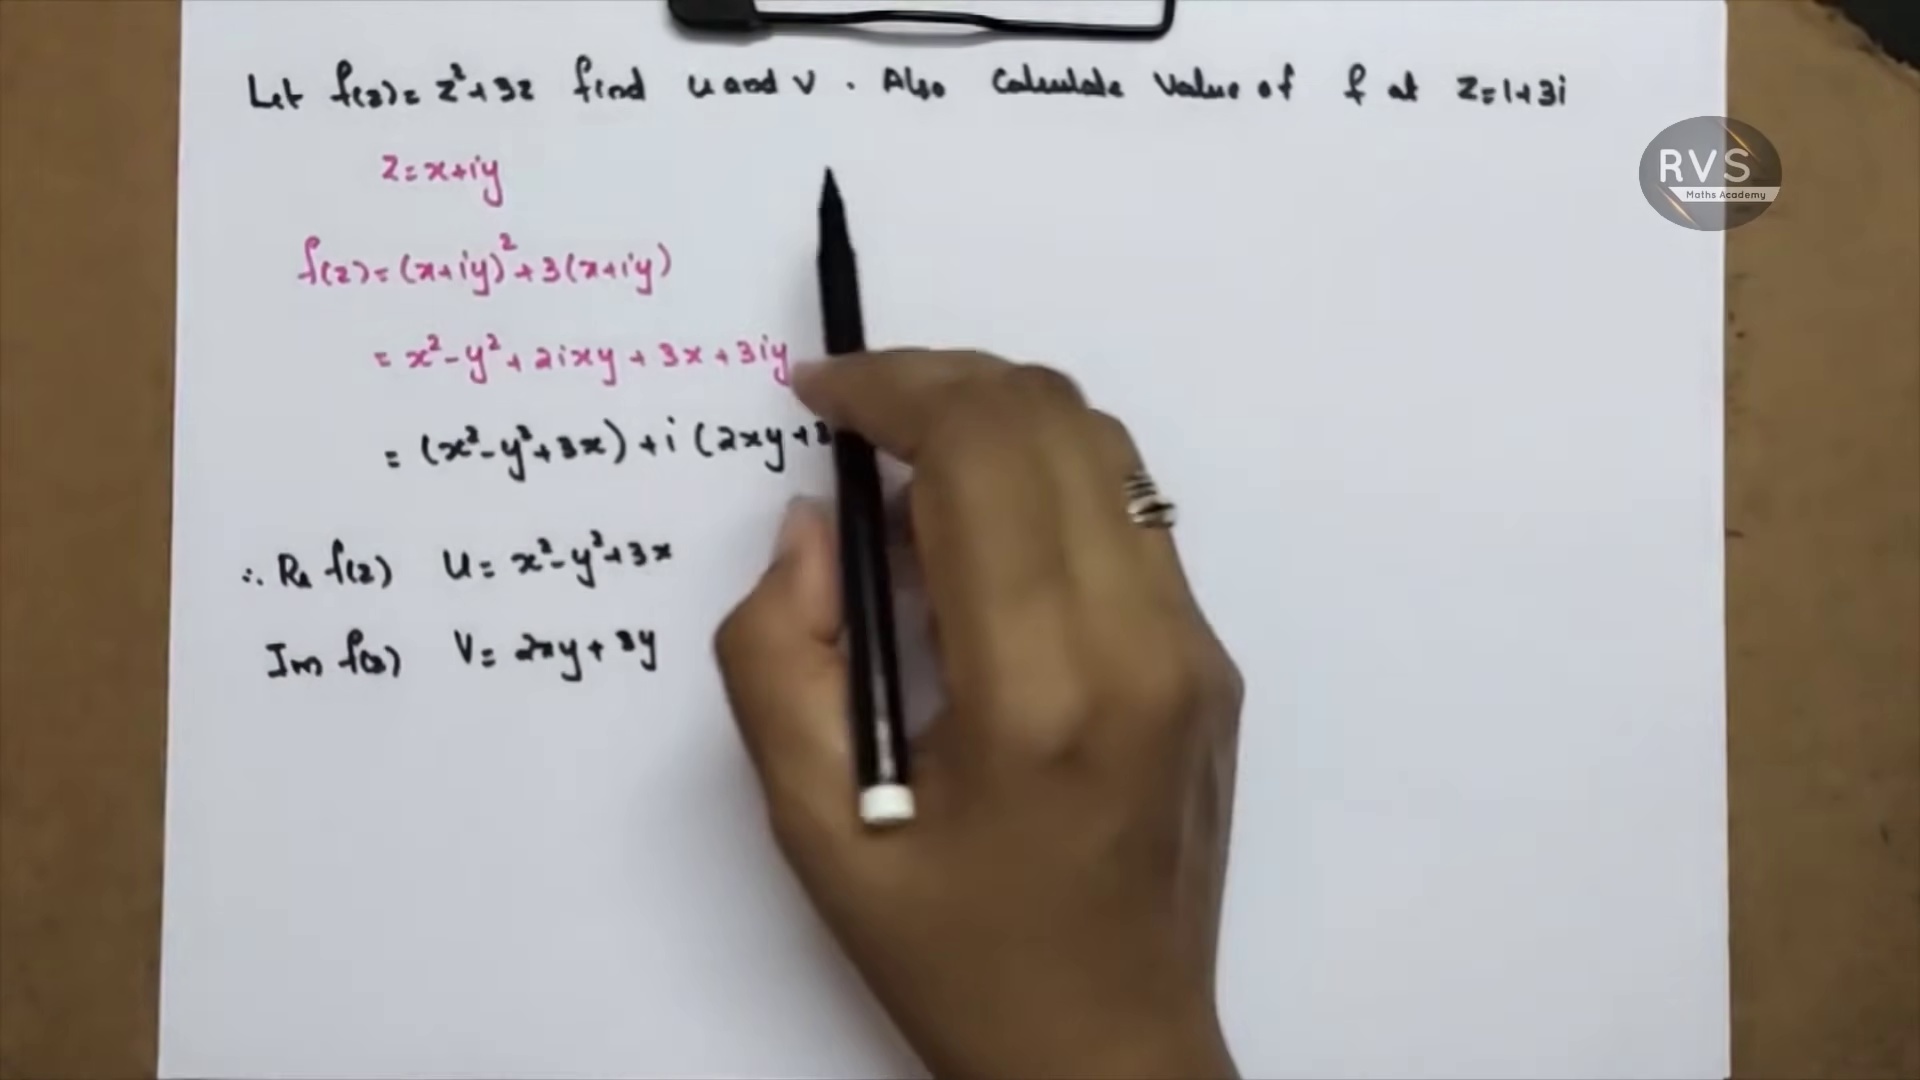 Let f(z) = z² + 3z find u and v. Also Calculate value of f at z = 1 + 3i
RVS
Maths Academy
z = x + iy
f(z) = (x + iy)² + 3(x + iy)
= x² - y² + 2ixy + 3x + 3iy
= (x² - y² + 3x) + i (2xy + 3
∴ Re f(z) u = x² - y² + 3x
Im f(z) v = 2xy + 3y